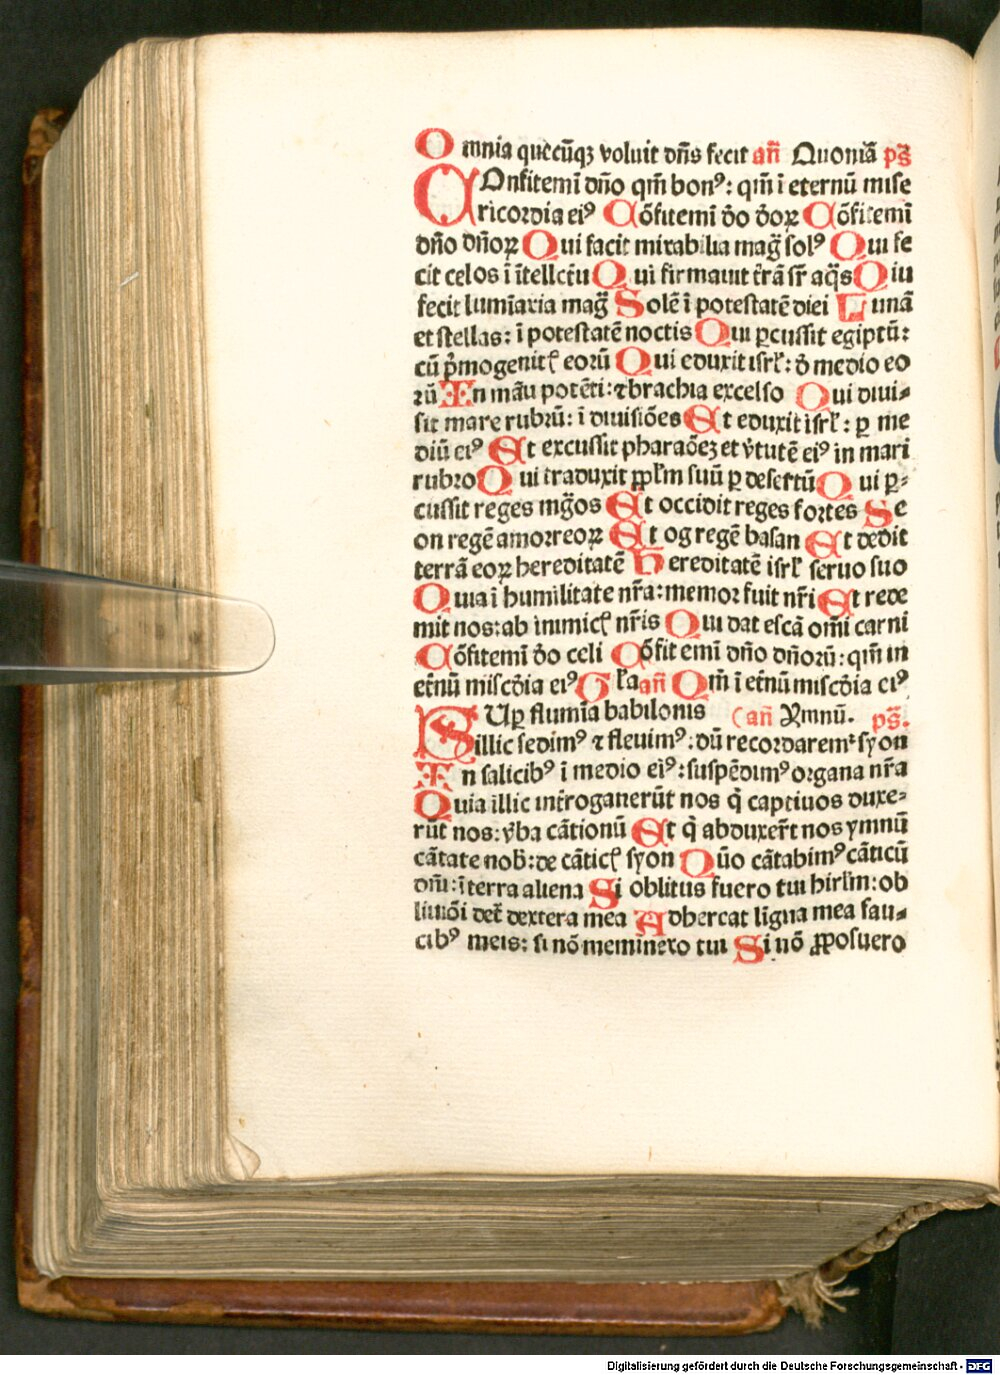 Omnia quecūqꝫ voluit dñs fecit añ Quoniā pš
COnfitemī dño qm̄ bonꝰ: qm̄ ī eternū mise
ricordia eiꝰ Cōfitemī ꝺ̄o ꝺ̄oꝝ Cōfitemī
dño dñoꝝ Qui facit mirabilia mag̃ solꝰ Qui fe
cit celos ī ītellctu Qui firmauit t̄rā sr̄ aq̄s Qiu
fecit lumīaria mag̃ Solē ī potestatē diei Lunā
et stellas: ī potestatē noctis Qui ꝑcussit egiptū:
cū p̄mogenitꝭ eorū Qui eduxit isrl̓: ꝺ̄ medio eo
rū In māu potēti: ⁊ brachia excelso Qui diui⸗
sit mare rubrū: ī diuisiōes Et eduxit isrl̓: ꝑ me
diū eiꝰ Et excussit pharaōeꝫ et v̄tutē eiꝰ in mari
rubro Qui traduxit ꝓpl̄m suū ꝑ desertū Qui ꝑ⸗
cussit reges mg̃os Et occidit reges fortes Se
on regē amorreoꝝ Et og regē basan Et dedit
terrā eoꝝ hereditatē Hereditatē isrl̓ seruo suo
Quia ī humilitate nr̄a: memor fuit nr̄i Et rede
mit nos: ab inimicꝭ nr̄is Qui dat escā om̄i carni
Cōfitemī ꝺ̄o celi Cōfit emī dño dñorū: qm̄ in
et̄nū misc̄dia eiꝰ Gl̓a añ Qm̄ ī et̄nū misc̄dia eiꝰ
SUꝑ flumīa babilonis (añ Ymnū. pš.
illic sedimꝰ ⁊ fleuimꝰ: dū recordaremᷣ syon
In salicibꝰ ī medio eiꝰ: suspēdimꝰ organa nr̄a
Quia illic int̄roganerūt nos q̄ captiuos duxe⸗
rūt nos: v̄ba cātionū Et q̄ abduxer̄t nos ymnū
cātate nob̄: de cāticꝭ syon Quō cātabimꝰ cāticū
dn̄i: ī terra aliena Si oblitus fuero tui hirl̄m: ob
liuiōi det̄ dextera mea Adhereat līgua mea fau⸗
cibꝰ meis: si nō meminero tui Si nō ꝓposuero
Digitalisierung gefördert durch die Deutsche Forschungsgemeinschaft - DFG